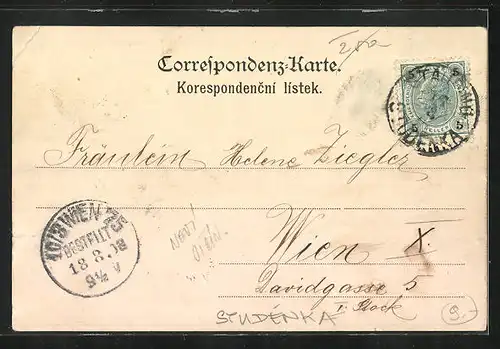 Correspondenz-Karte.
Korespondenční lístek.
Fräulein Helene Ziegler
Wien X.
Davidgasse 5
I. Stock
10/3 WIEN 75
BESTELLT
9½ V
STUDÉNKA
9.-